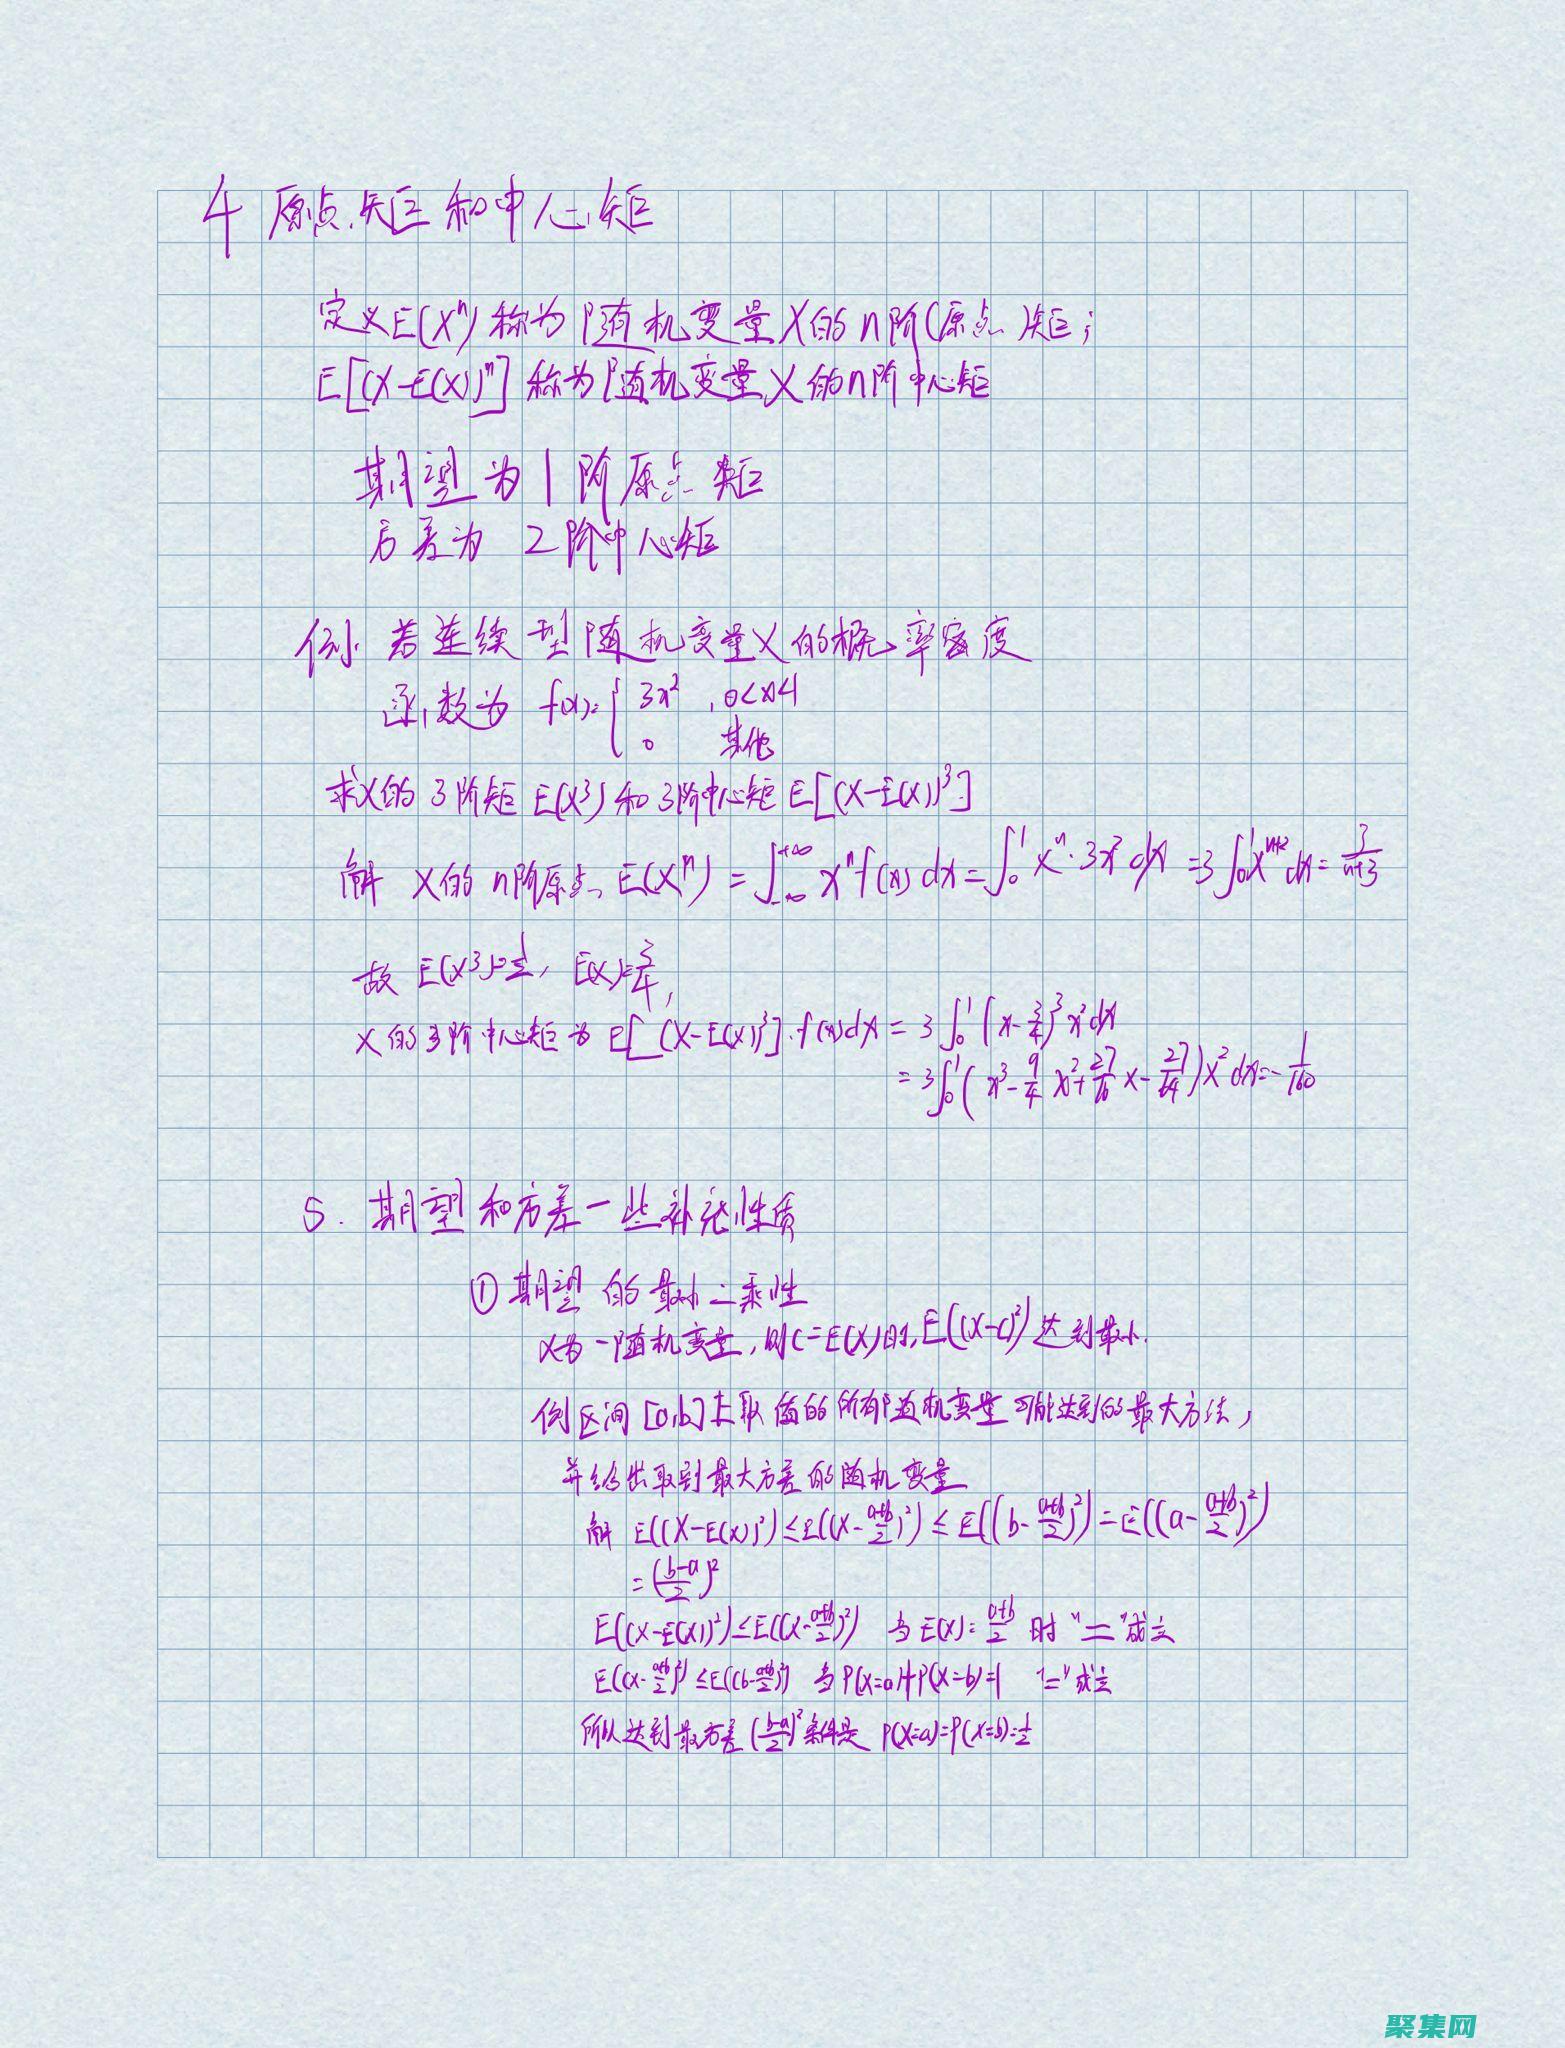 4 原点矩和中心矩
定义E(Xⁿ)称为随机变量X的n阶(原点)矩；
E[(X-E(X))ⁿ]称为随机变量X的n阶中心矩
期望为1阶原点矩
方差为 2阶中心矩
例. 若连续型随机变量X的概率密度
函数为 f(x)={ 3x² , 0<x<1
0 其他
求X的3阶矩E(X³)和3阶中心矩E[(X-E(X))³]
解 X的n阶原点 E(Xⁿ) = ∫₋∞⁺∞ xⁿf(x)dx = ∫₀¹ xⁿ·3x²dx = 3∫₀¹xⁿ⁺²dx = 3/(n+3)
故 E(X³)=1/2, E(X)=3/4,
X的3阶中心矩为 E[(X-E(X))³]·f(x)dx = 3∫₀¹(x-3/4)³x²dx
= 3∫₀¹(x³-9/4 x²+27/16 x-27/64)x²dx=-1/160
5. 期望和方差一些补充性质
① 期望的最小二乘性
X为一随机变量,则C=E(X)时,E((X-C)²)达到最小.
例 区间[a,b]上取值的所有随机变量可能达到的最大方法,
并给出取到最大方差的随机变量
解 E((X-E(X))²)≤E((X-(a+b)/2)²)≤E((b-(a+b)/2)²)=E((a-(a+b)/2)²)
=((b-a)/2)²
E((X-E(X))²)≤E((X-(a+b)/2)²) 当E(X)=(a+b)/2 时"="成立
E((X-(a+b)/2)²)≤E((b-(a+b)/2)²) 当P(X=a)+P(X=b)=1 "="成立
所以达到最方差((b-a)/2)²条件是 P(X=a)=P(X=b)=1/2
聚集网